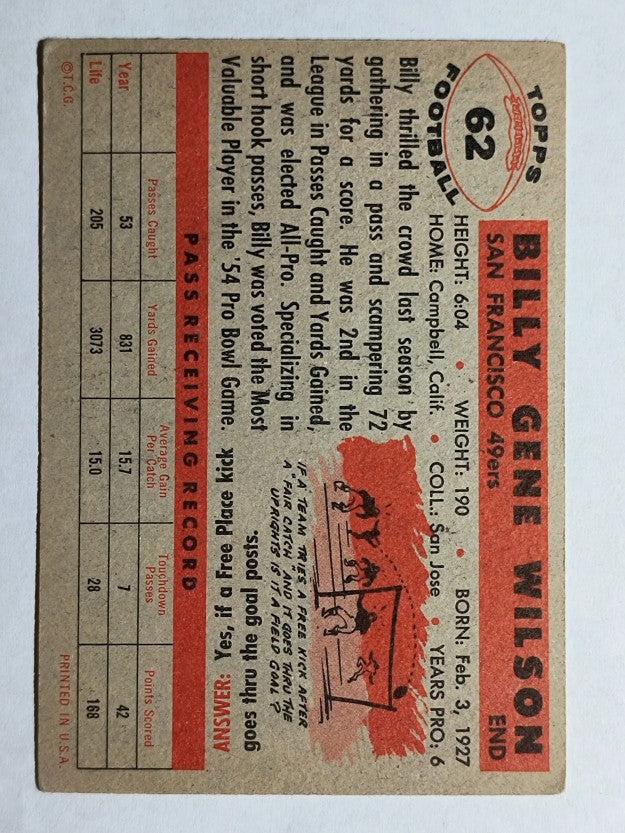 TOPPS
62
FOOTBALL
BILLY GENE WILSON
SAN FRANCISCO 49ers END
HEIGHT: 6:04 • WEIGHT: 190 • BORN: Feb. 3, 1927
HOME: Campbell, Calif. • COLL.: San Jose • YEARS PRO: 6
Billy thrilled the crowd last season by
gathering in a pass and scampering 72
yards for a score. He was 2nd in the
League in Passes Caught and Yards Gained,
and was elected All-Pro. Specializing in
short hook passes, Billy was voted the Most
Valuable Player in the '54 Pro Bowl Game.
IF A TEAM TRIES A FREE KICK AFTER
A "FAIR CATCH" AND IT GOES THRU THE
UPRIGHTS IS IT A FIELD GOAL?
ANSWER: Yes, if a Free Place Kick
goes thru the goal posts.
PASS RECEIVING RECORD
Passes Caught Yards Gained Average Gain Per Catch Touchdown Passes Points Scored
Year 53 831 15.7 7 42
Life 205 3073 15.0 28 168
©T.C.G. PRINTED IN U.S.A.